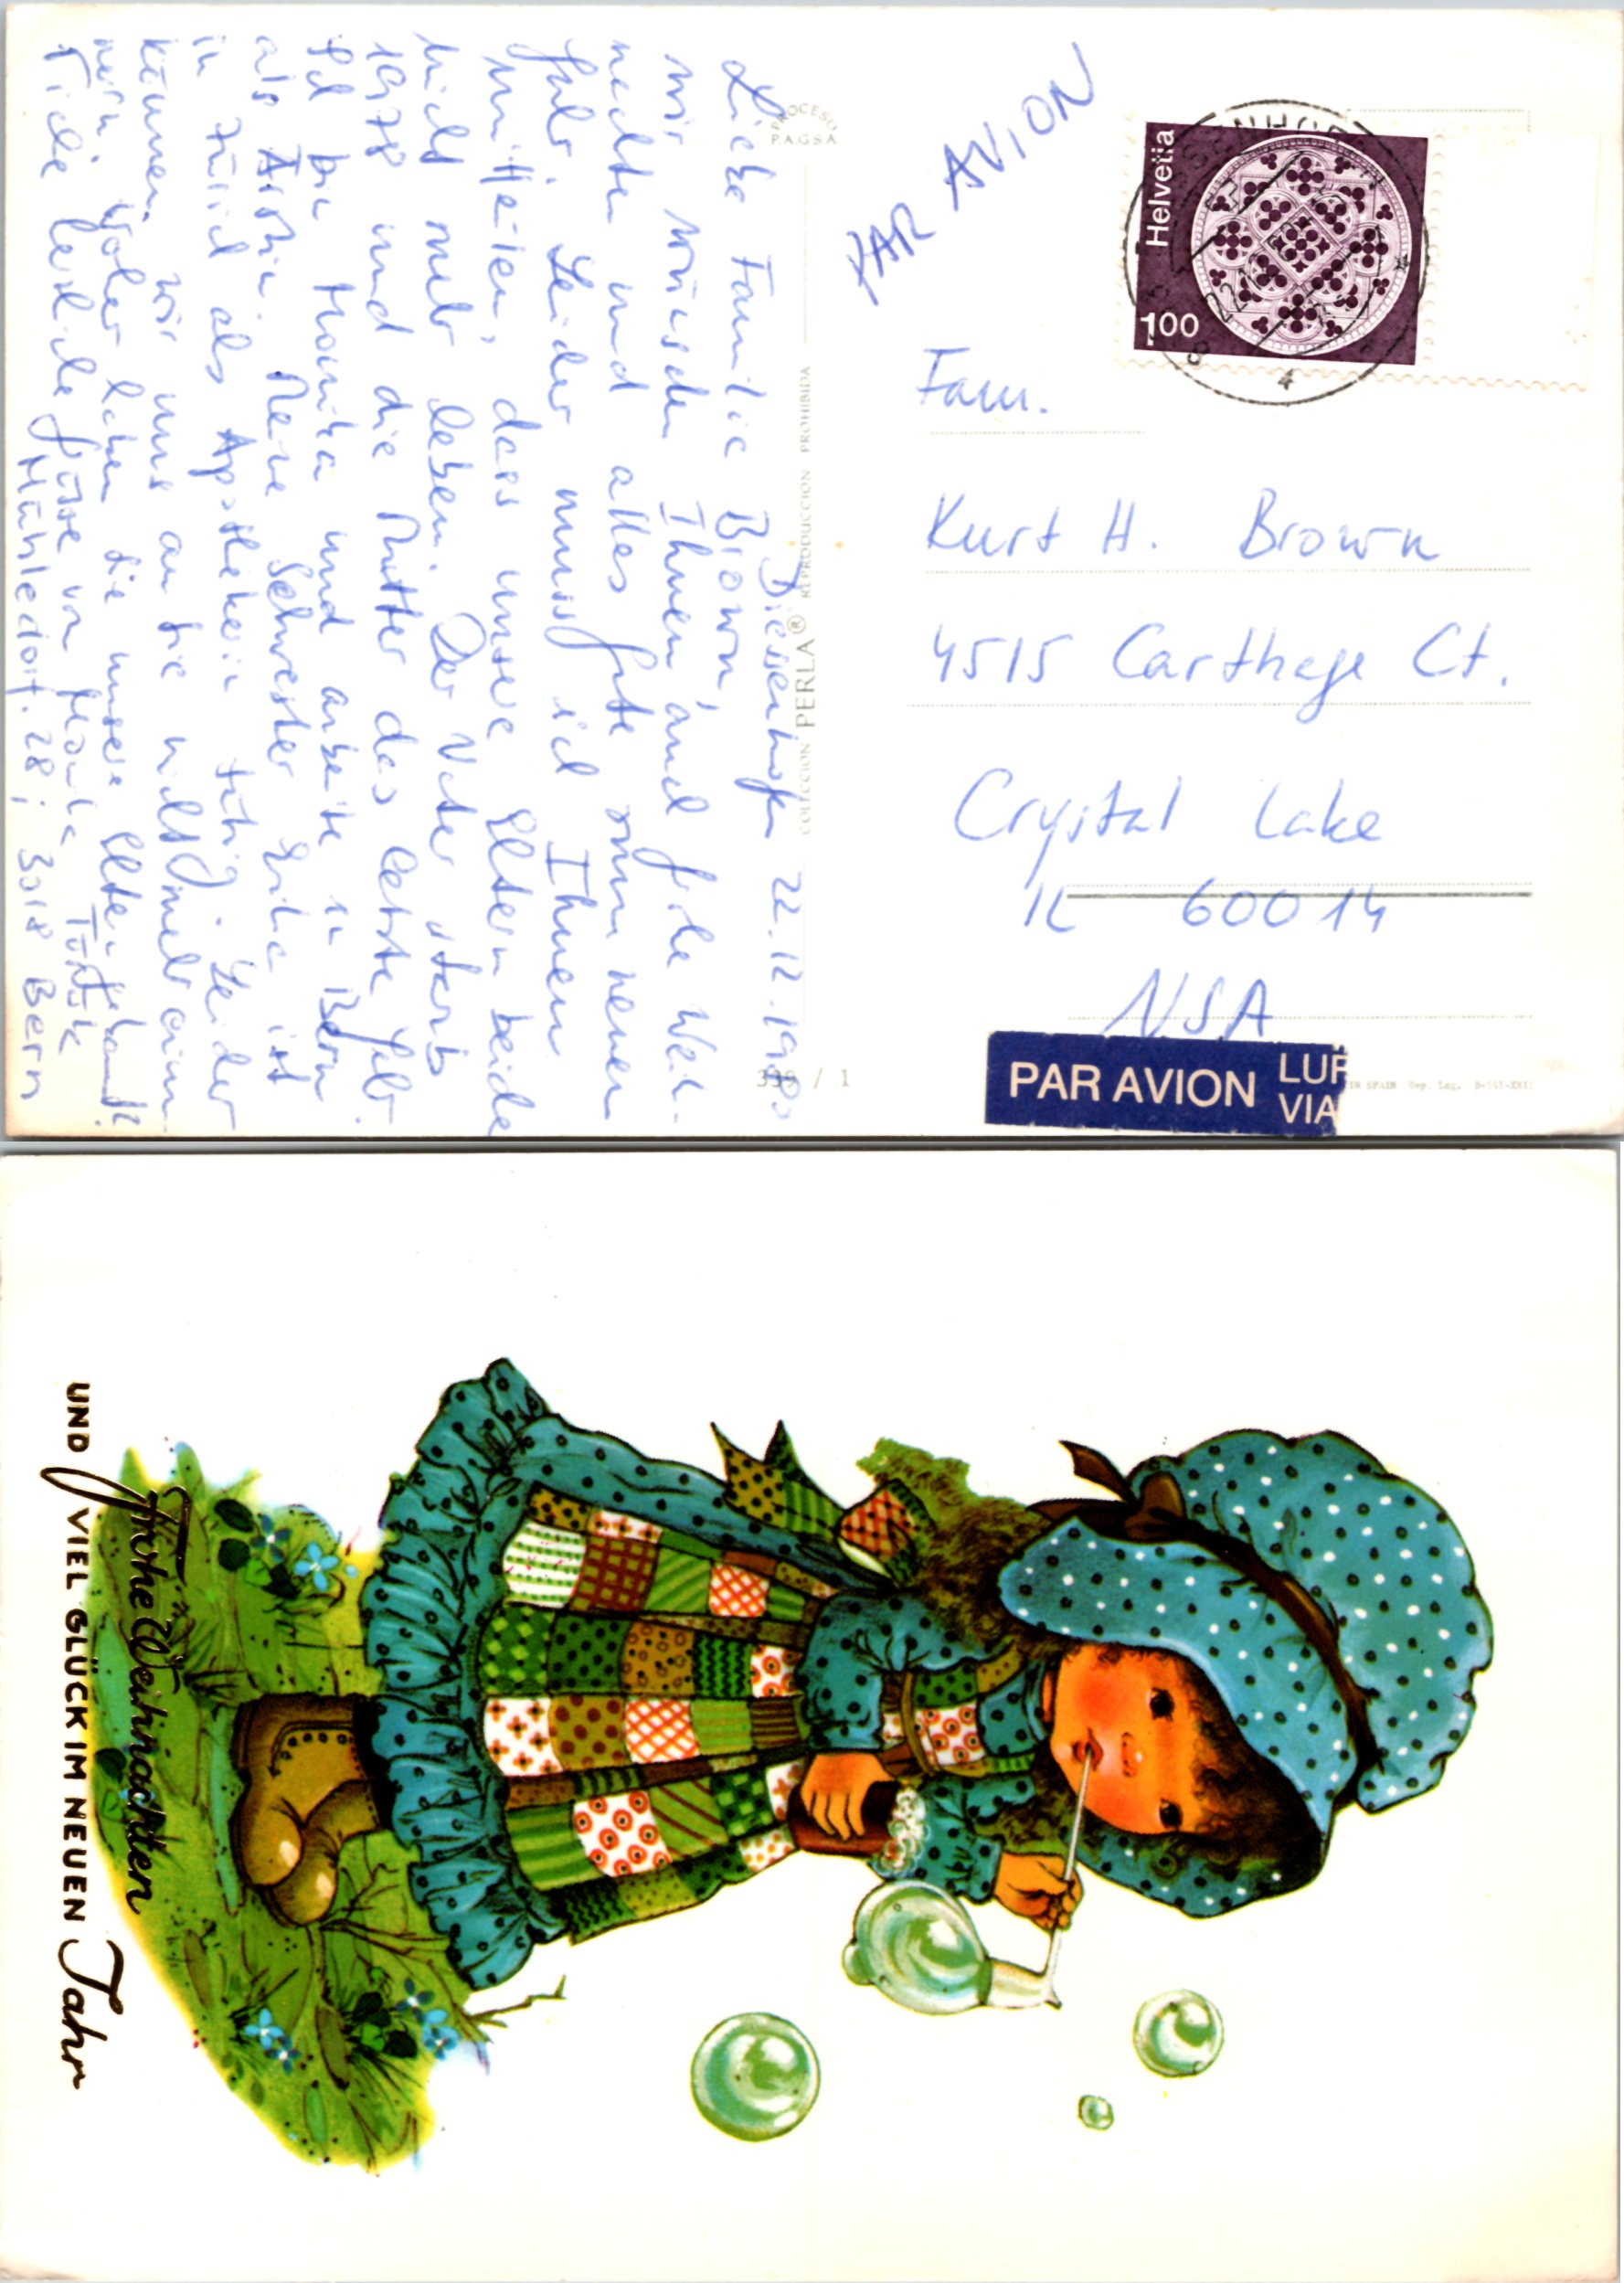 Diessenhofen 22.12.1980
Liebe Familie Brown,
wir wünschen Ihnen allen frohe Weih-
nachten und alles gute zum neuen
Jahr. Leider muss ich Ihnen
mitteilen, dass unsere Eltern beide
nicht mehr leben. Der Vater starb
1978 und die Mutter das letzte Jahr.
Ich bin Monika und arbeite in Bern
als Ärztin. Meine Schwester Erika ist
in Zürich als Apothekerin tätig. Leider
können wir uns an Sie nicht mehr erinn-
ern. Woher haben Sie unsere Eltern gekannt?
Viele herzliche Grüsse von Monika
Mühledorf. 28; 3018 Bern
PROCESO
P.A.G.S.A.
COLECCION PERLA® REPRODUCCION PROHIBIDA
339 / 1
PAR AVION
Helvetia
100
Fam.
Kurt H. Brown
4515 Carthage Ct.
Crystal Lake
IL 60014
USA
PAR AVION
LUF
VIA
IN SPAIN Dep. Leg.
Frohe Weihnachten
UND VIEL GLÜCK IM NEUEN Jahr